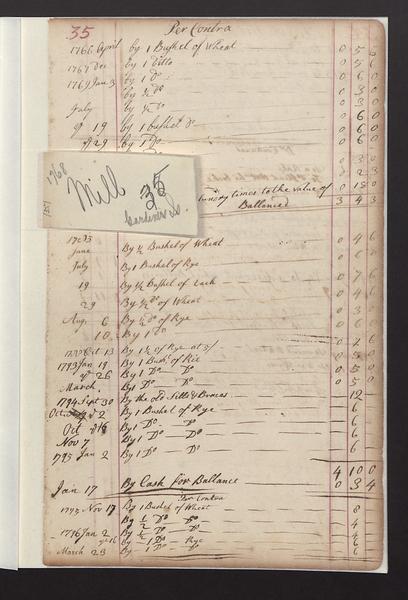 35 Per Contra
1766 April by 1 Bushel of Wheat 0 5 6
1767 Dec by 1 Ditto 0 5 6
1769 Jan 3 by 1 Do 0 6 0
by ½ Do 0 3 0
July by ½ Do 0 3 0
19 by 1 bushel Do 0 6 0
29 by 1 Do 0 6 0
1768
Mill 35
Gardiners Is.
0 3 0
0 2 3
sundry times to the value of 0 15 0
Ballanced 3 4 3
By ½ Bushel of Wheat 0 4 6
June
July By 1 Bushel of Rye
19 By ½ Bushel of Each
29 By ½ Do of Wheat
Aug. 6 By ½ Do of Rye
10 By 1 Do
Oct 13 By 1½ of Rye at 5/ 0 7 6
1793 Jan 19 By 1 Bush. of Rie 0 5 0
26 By 1 Do Do 0 5 0
March By 1 Do Do 0 5 0
1794 Sept 30 By the old Sills & Braces 12
By 1 Bushel of Rye 6
Oct 16 By 1 Do Do 6
Nov 7 By 1 Do Do 6
1795 Jan 2 By 1 Do Do 6
4 10 0
Jan 17 By Cash for Ballance 0 3 4
Per Contra
1775 Nov 17 By 1 Bushel of Wheat 8
By ½ Do Do 4
1776 Jan 2 By ½ Do Do 4
By 1 Do Rye
March 23 By 1 Do Do 6